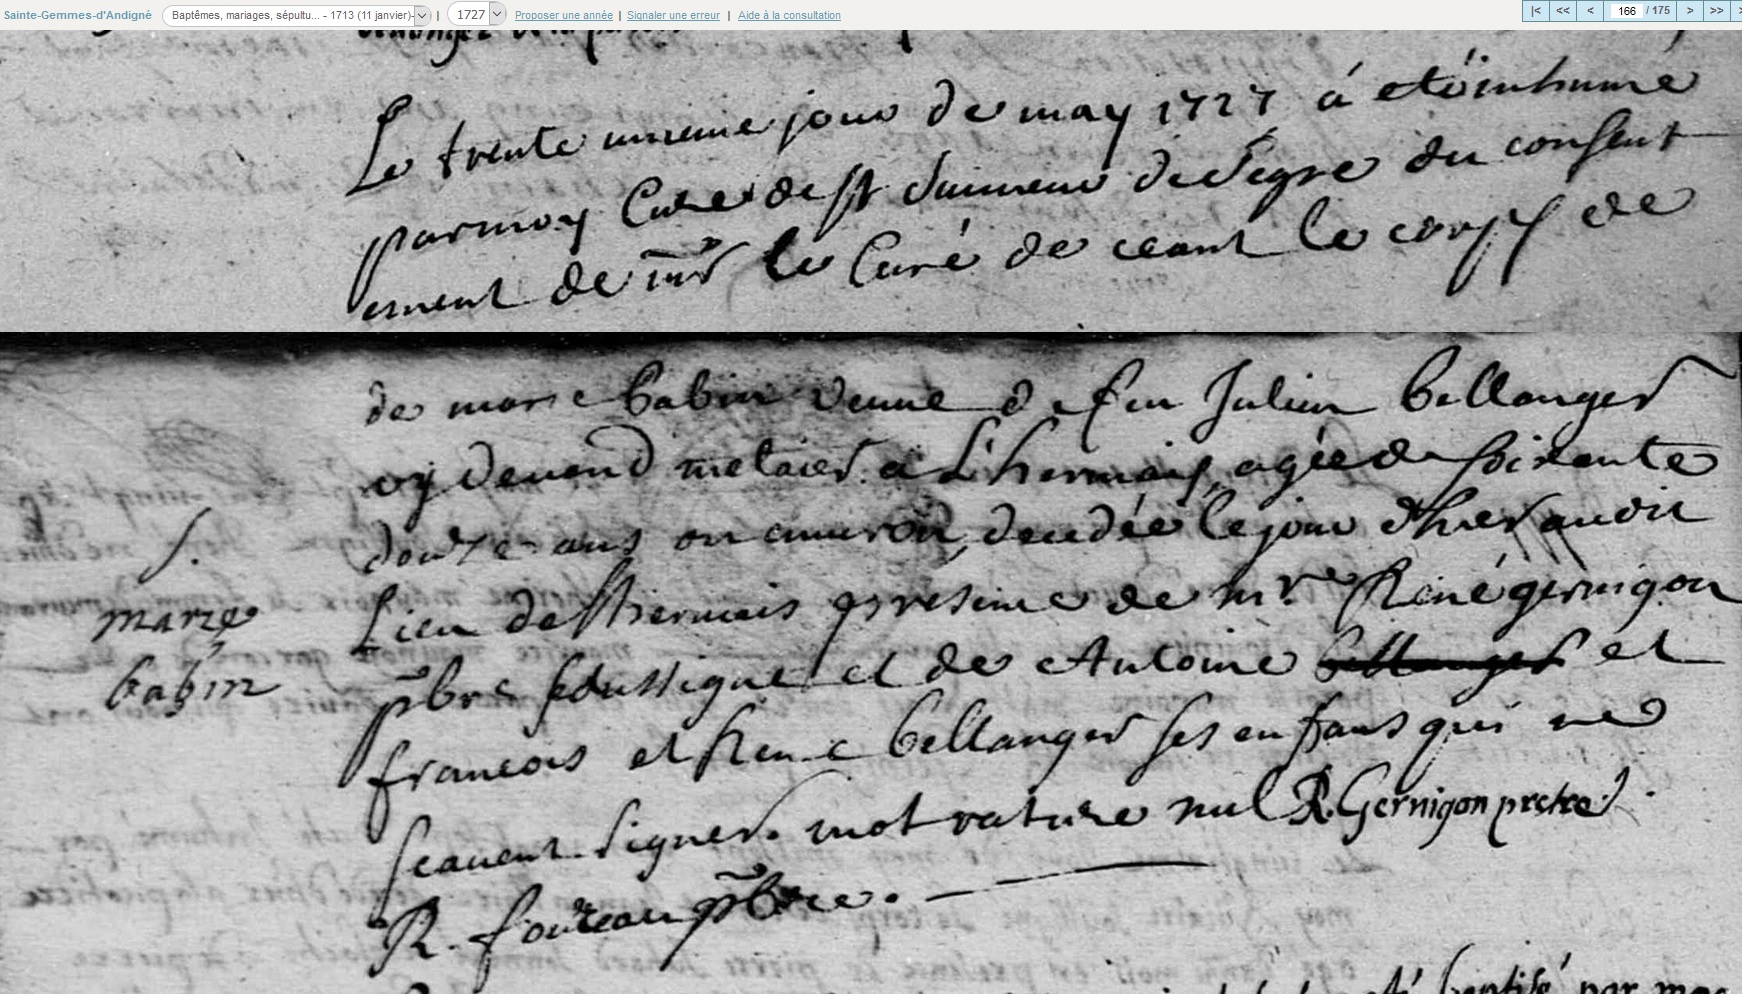 Sainte-Gemmes-d'Andigné Baptêmes, mariages, sépultu... - 1713 (11 janvier)- | 1727 Proposer une année | Signaler une erreur | Aide à la consultation |< << < 166 / 175 > >>
Le trente unieme jour de may 1727 á eté inhumé
par moy Curé de st Sauveur de Segre du consent
ement de mr le Curé de ceant le corps de
de marie babin veuve de feu Julien bellanger
vivant metaier a L'hermais, agée de soixante
douze ans ou environ, decedée le jour d'hier audit
Lieu de l'hermais presence de mre René gernigon
pbre soussigné et de Antoine bellanger et
francois et René bellanger ses enfans qui ne
scavent signer. mot rature nul R. Gernigon pretre
R. foureau pbre.
S.
marie
babin